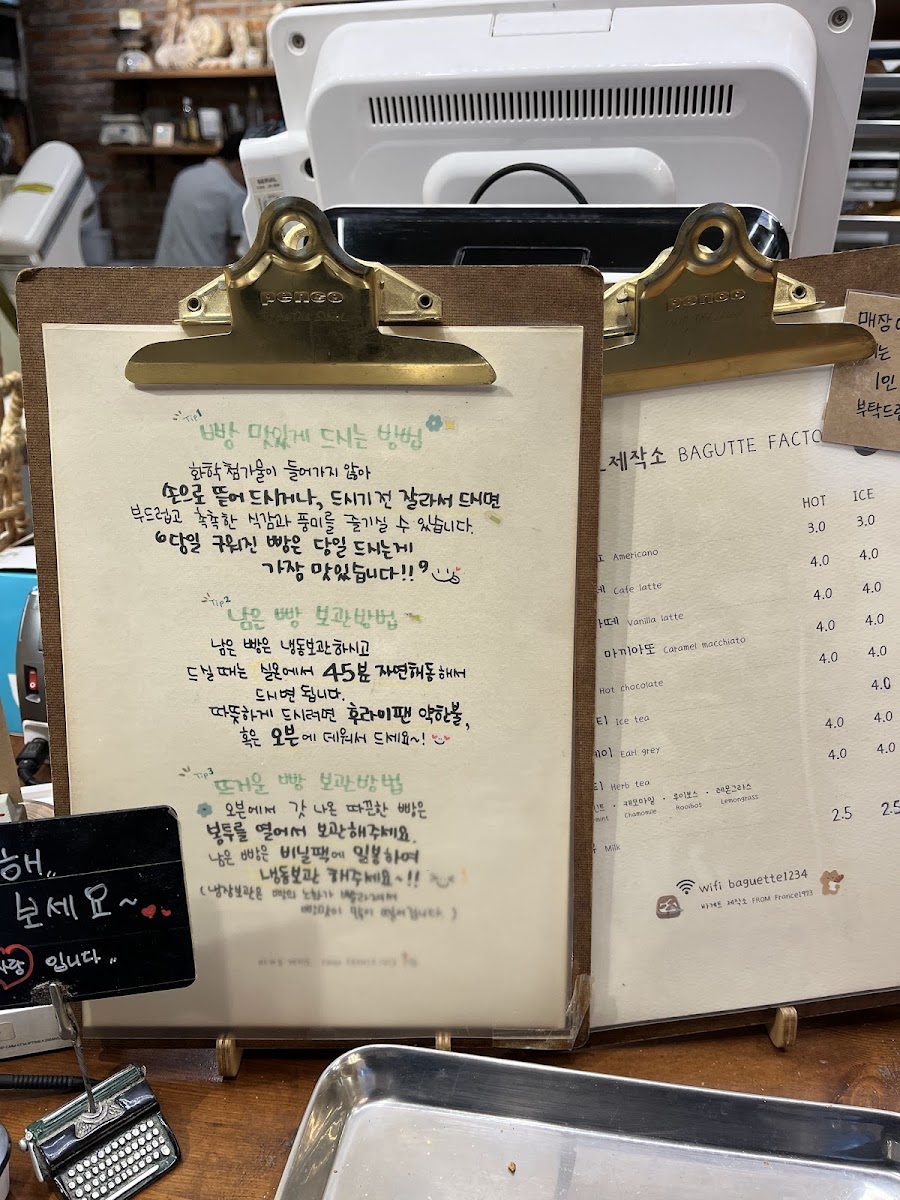 SERIAL
penco
Tip1
빵 맛있게 드시는 방법
화학첨가물이 들어가지 않아
손으로 뜯어 드시거나, 드시기 전 잘라서 드시면
부드럽고 촉촉한 식감과 풍미를 즐기실 수 있습니다.
"당일 구워진 빵은 당일 드시는게
가장 맛있습니다!!"
Tip2
남은 빵 보관방법
남은 빵은 냉동보관하시고
드실 때는 실온에서 45분 자연해동해서
드시면 됩니다.
따뜻하게 드시려면 후라이팬 약한불,
혹은 오븐에 데워서 드세요~!
Tip3
뜨거운 빵 보관방법
오븐에서 갓 나온 따끈한 빵은
봉투를 열어서 보관해주세요.
남은 빵은 비닐팩에 밀봉하여
냉동보관 해주세요~!!
(냉장보관은 빵의 노화가 빨라져서
빵맛이 많이 떨어집니다.)
해"
보세요~
입니다"
penco
매장
는
1인
부탁드
제작소 BAGUTTE FACTO
HOT ICE
3.0 3.0
Americano 4.0 4.0
Cafe latte 4.0 4.0
Vanilla latte 4.0 4.0
마끼아또 Caramel macchiato 4.0 4.0
Hot chocolate 4.0
티 Ice tea 4.0 4.0
Earl grey 4.0 4.0
티 Herb tea
민트 · 캐모마일 · 루이보스 · 레몬그라스
mint Chamomile Rooibos Lemongrass
2.5 2.5
Milk
wifi baguette1234
바게트 제작소 FROM France1973